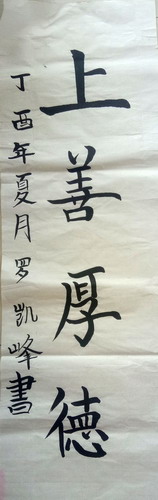 上善厚德
丁酉年夏月罗凯峰書